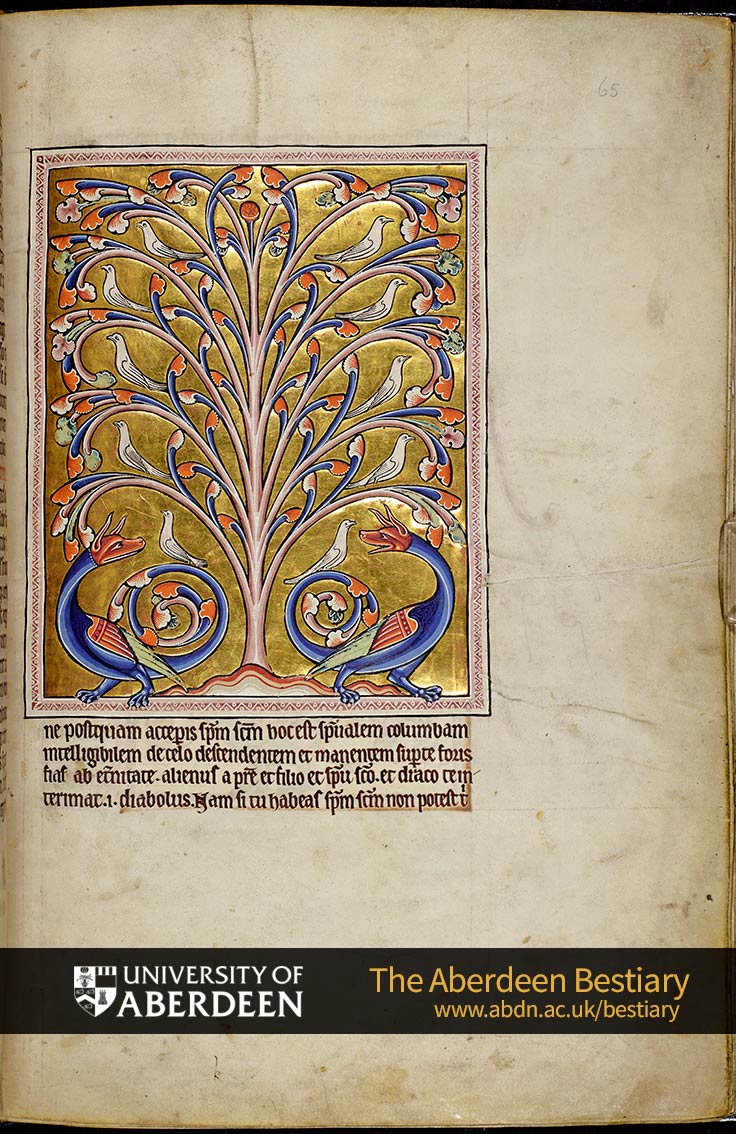 65
ne postquam acceperis spm scm hoc est spualem columbam
intelligibilem de celo descendentem et manentem supte foris
fias ab etnitate. alienus a pre et filio et spu sco. et draco te in-
terimat .i. diabolus. Nam si tu habeas spm scm non potest t
UNIVERSITY OF
ABERDEEN
The Aberdeen Bestiary
www.abdn.ac.uk/bestiary